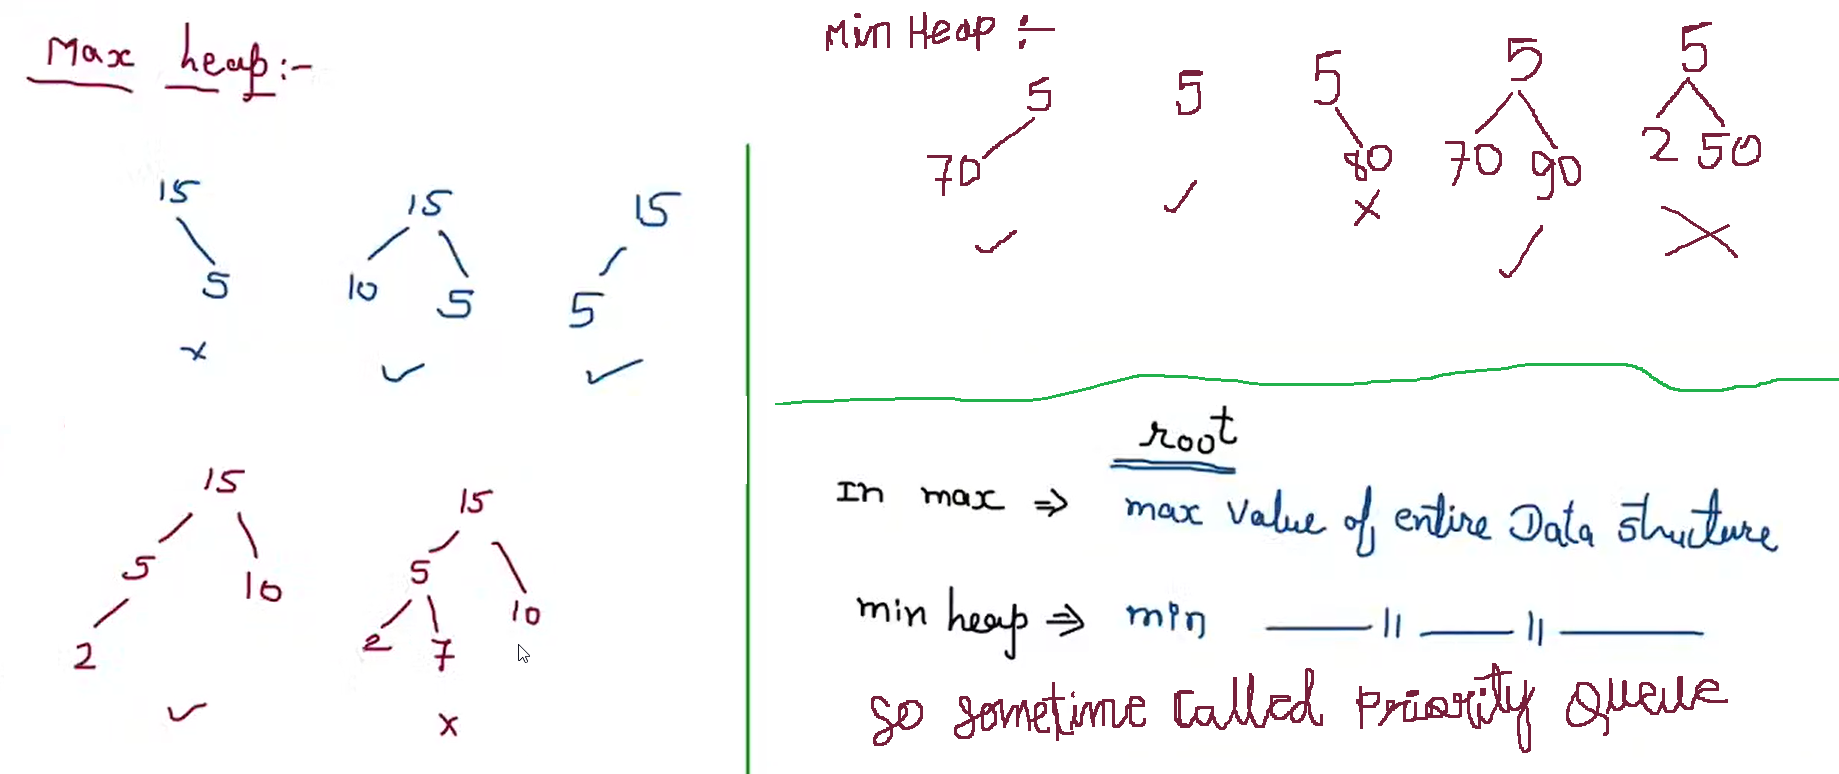 Max heap:-
15
5
x
15
10 5
✓
15
5
✓
15
5 10
2
✓
15
5 10
2 7
x
Min Heap :-
5
70
✓
5
✓
5
80
x
5
70 90
✓
5
2 50
x
root
In max ⇒ max value of entire Data structure
min heap ⇒ min —— 11 —— 11 ——
So sometime called Priority Queue